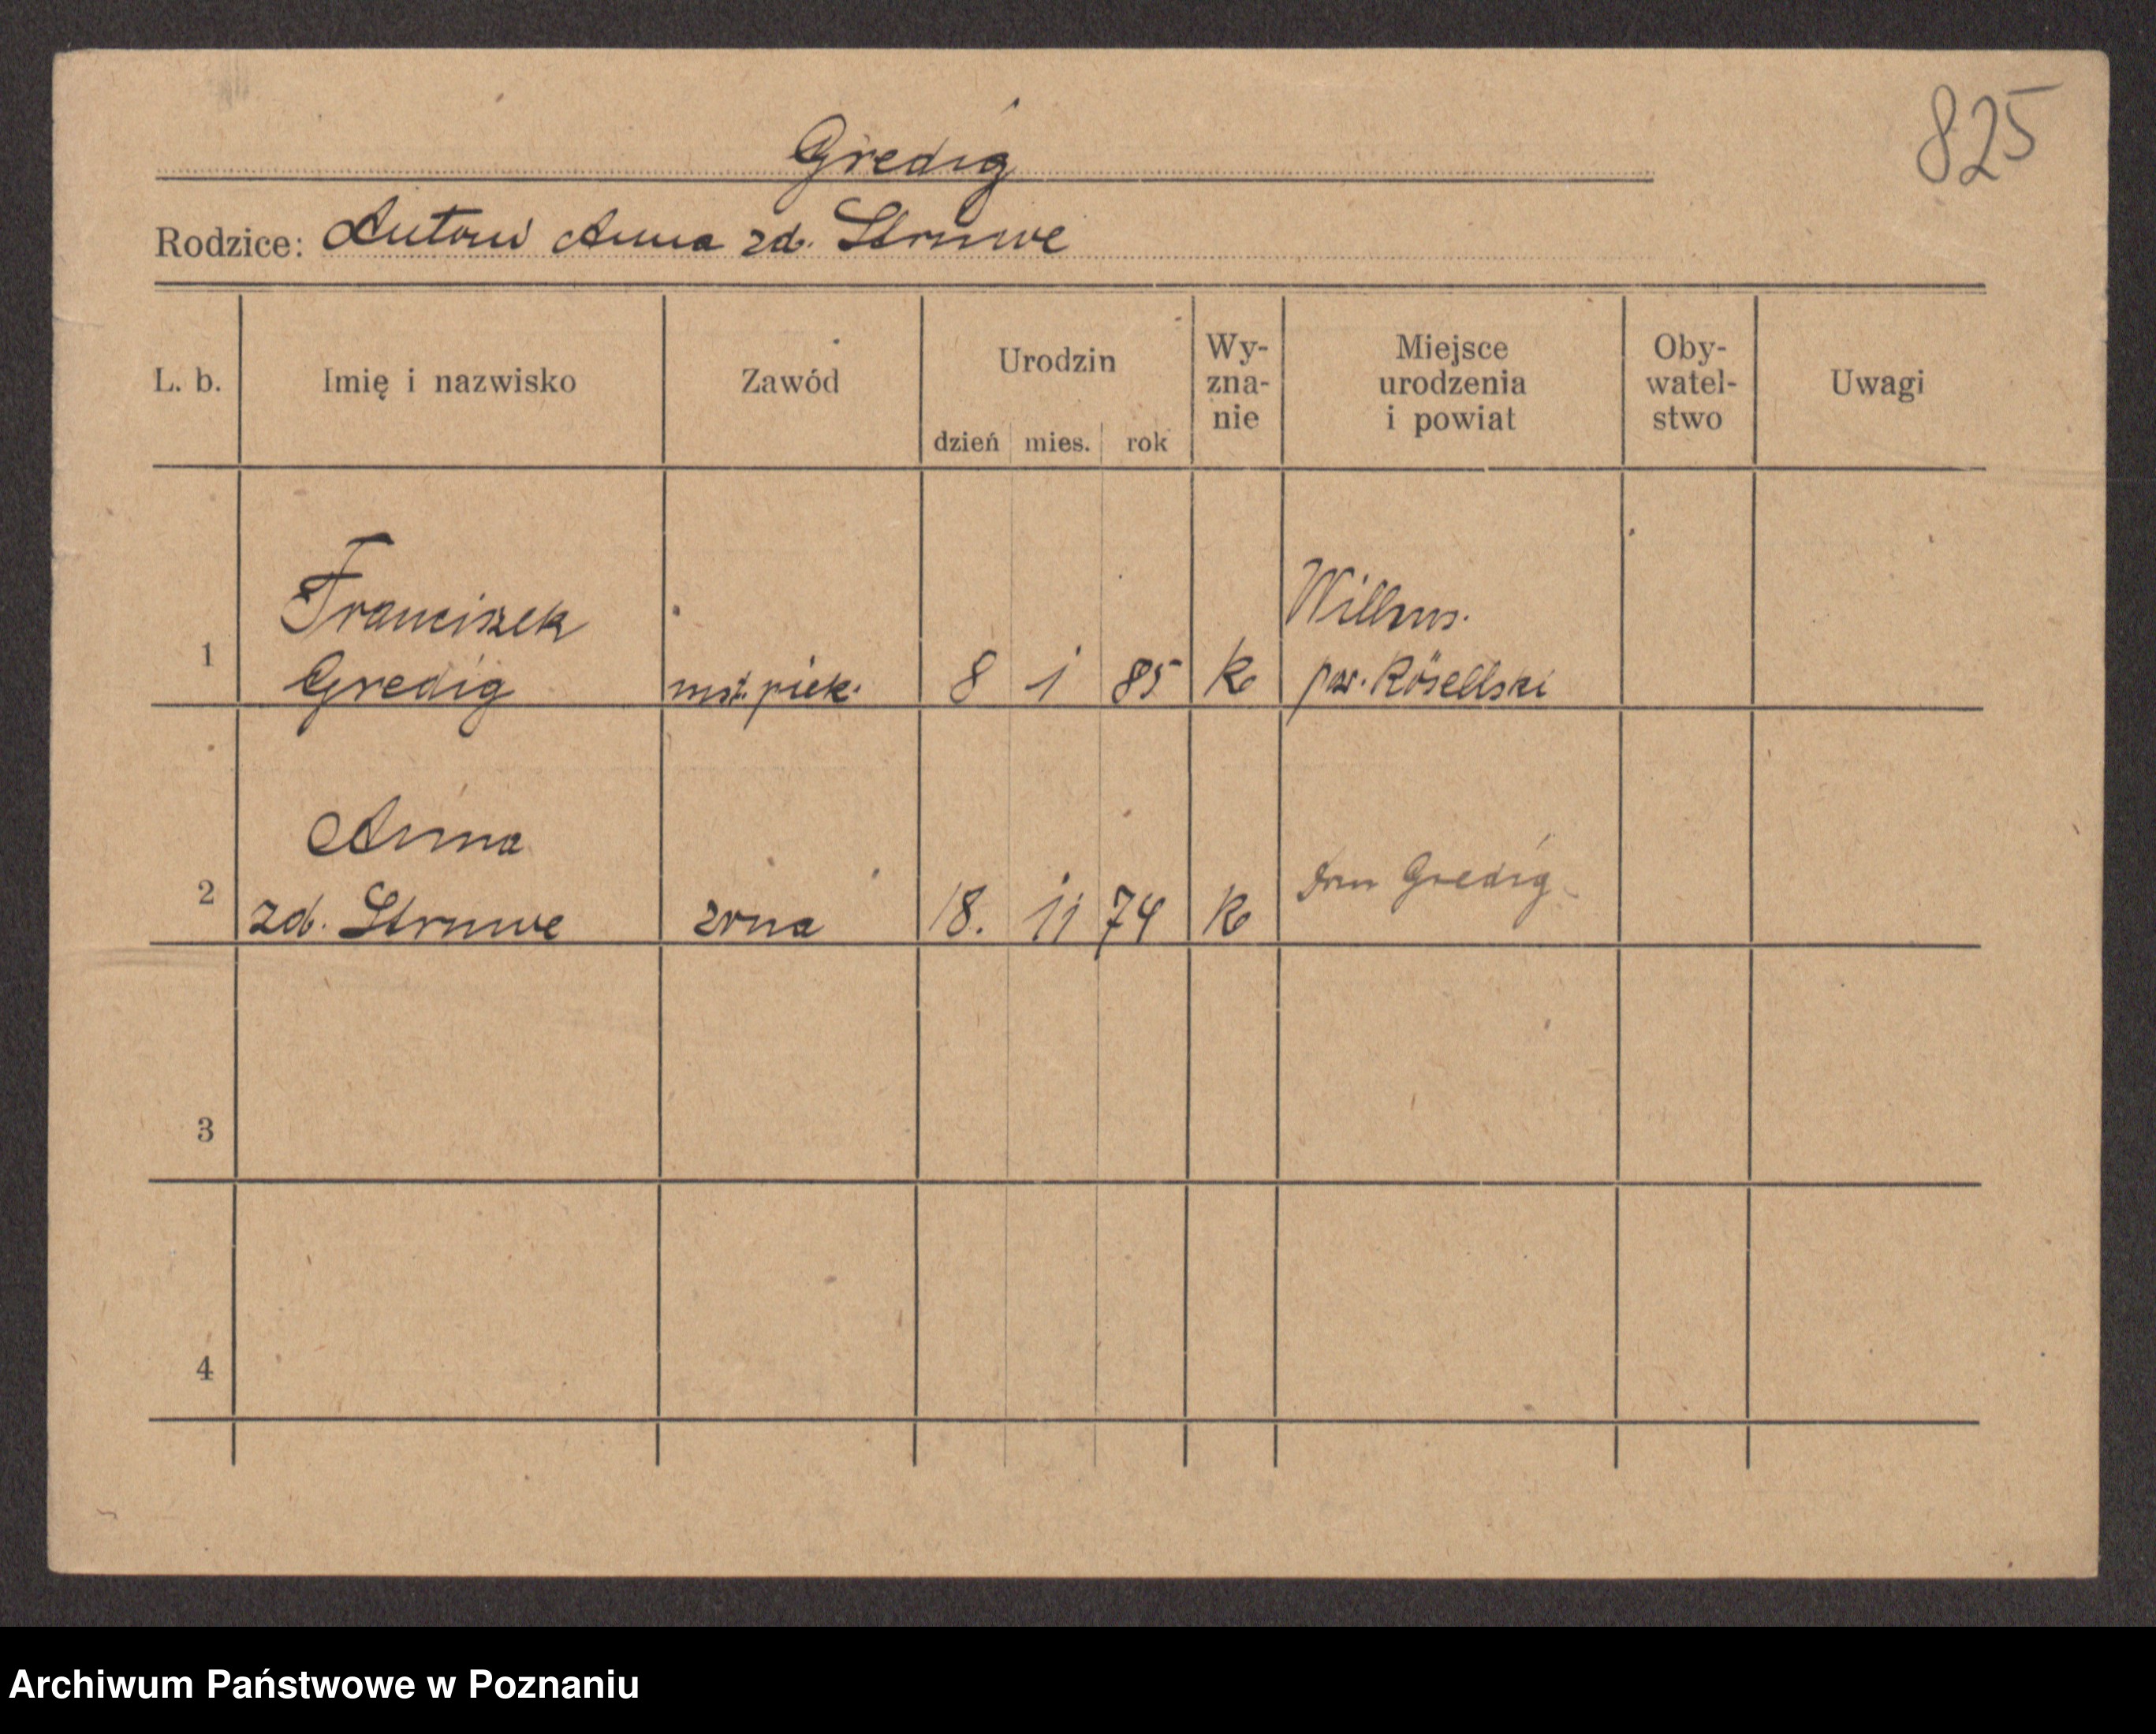 825
Gredig
Rodzice: Antoni Anna zd. Struwe
L. b. Imię i nazwisko Zawód Urodzin dzień mies. rok Wy-zna-nie Miejsce urodzenia i powiat Oby-watel-stwo Uwagi
Franciszek Willms.
1 Gredig mst. piek. 8 1 85 k pow. Rösellski
Anna
2 zd. Struwe żona 18. 11 74 k Gredig
3
4
Archiwum Państwowe w Poznaniu